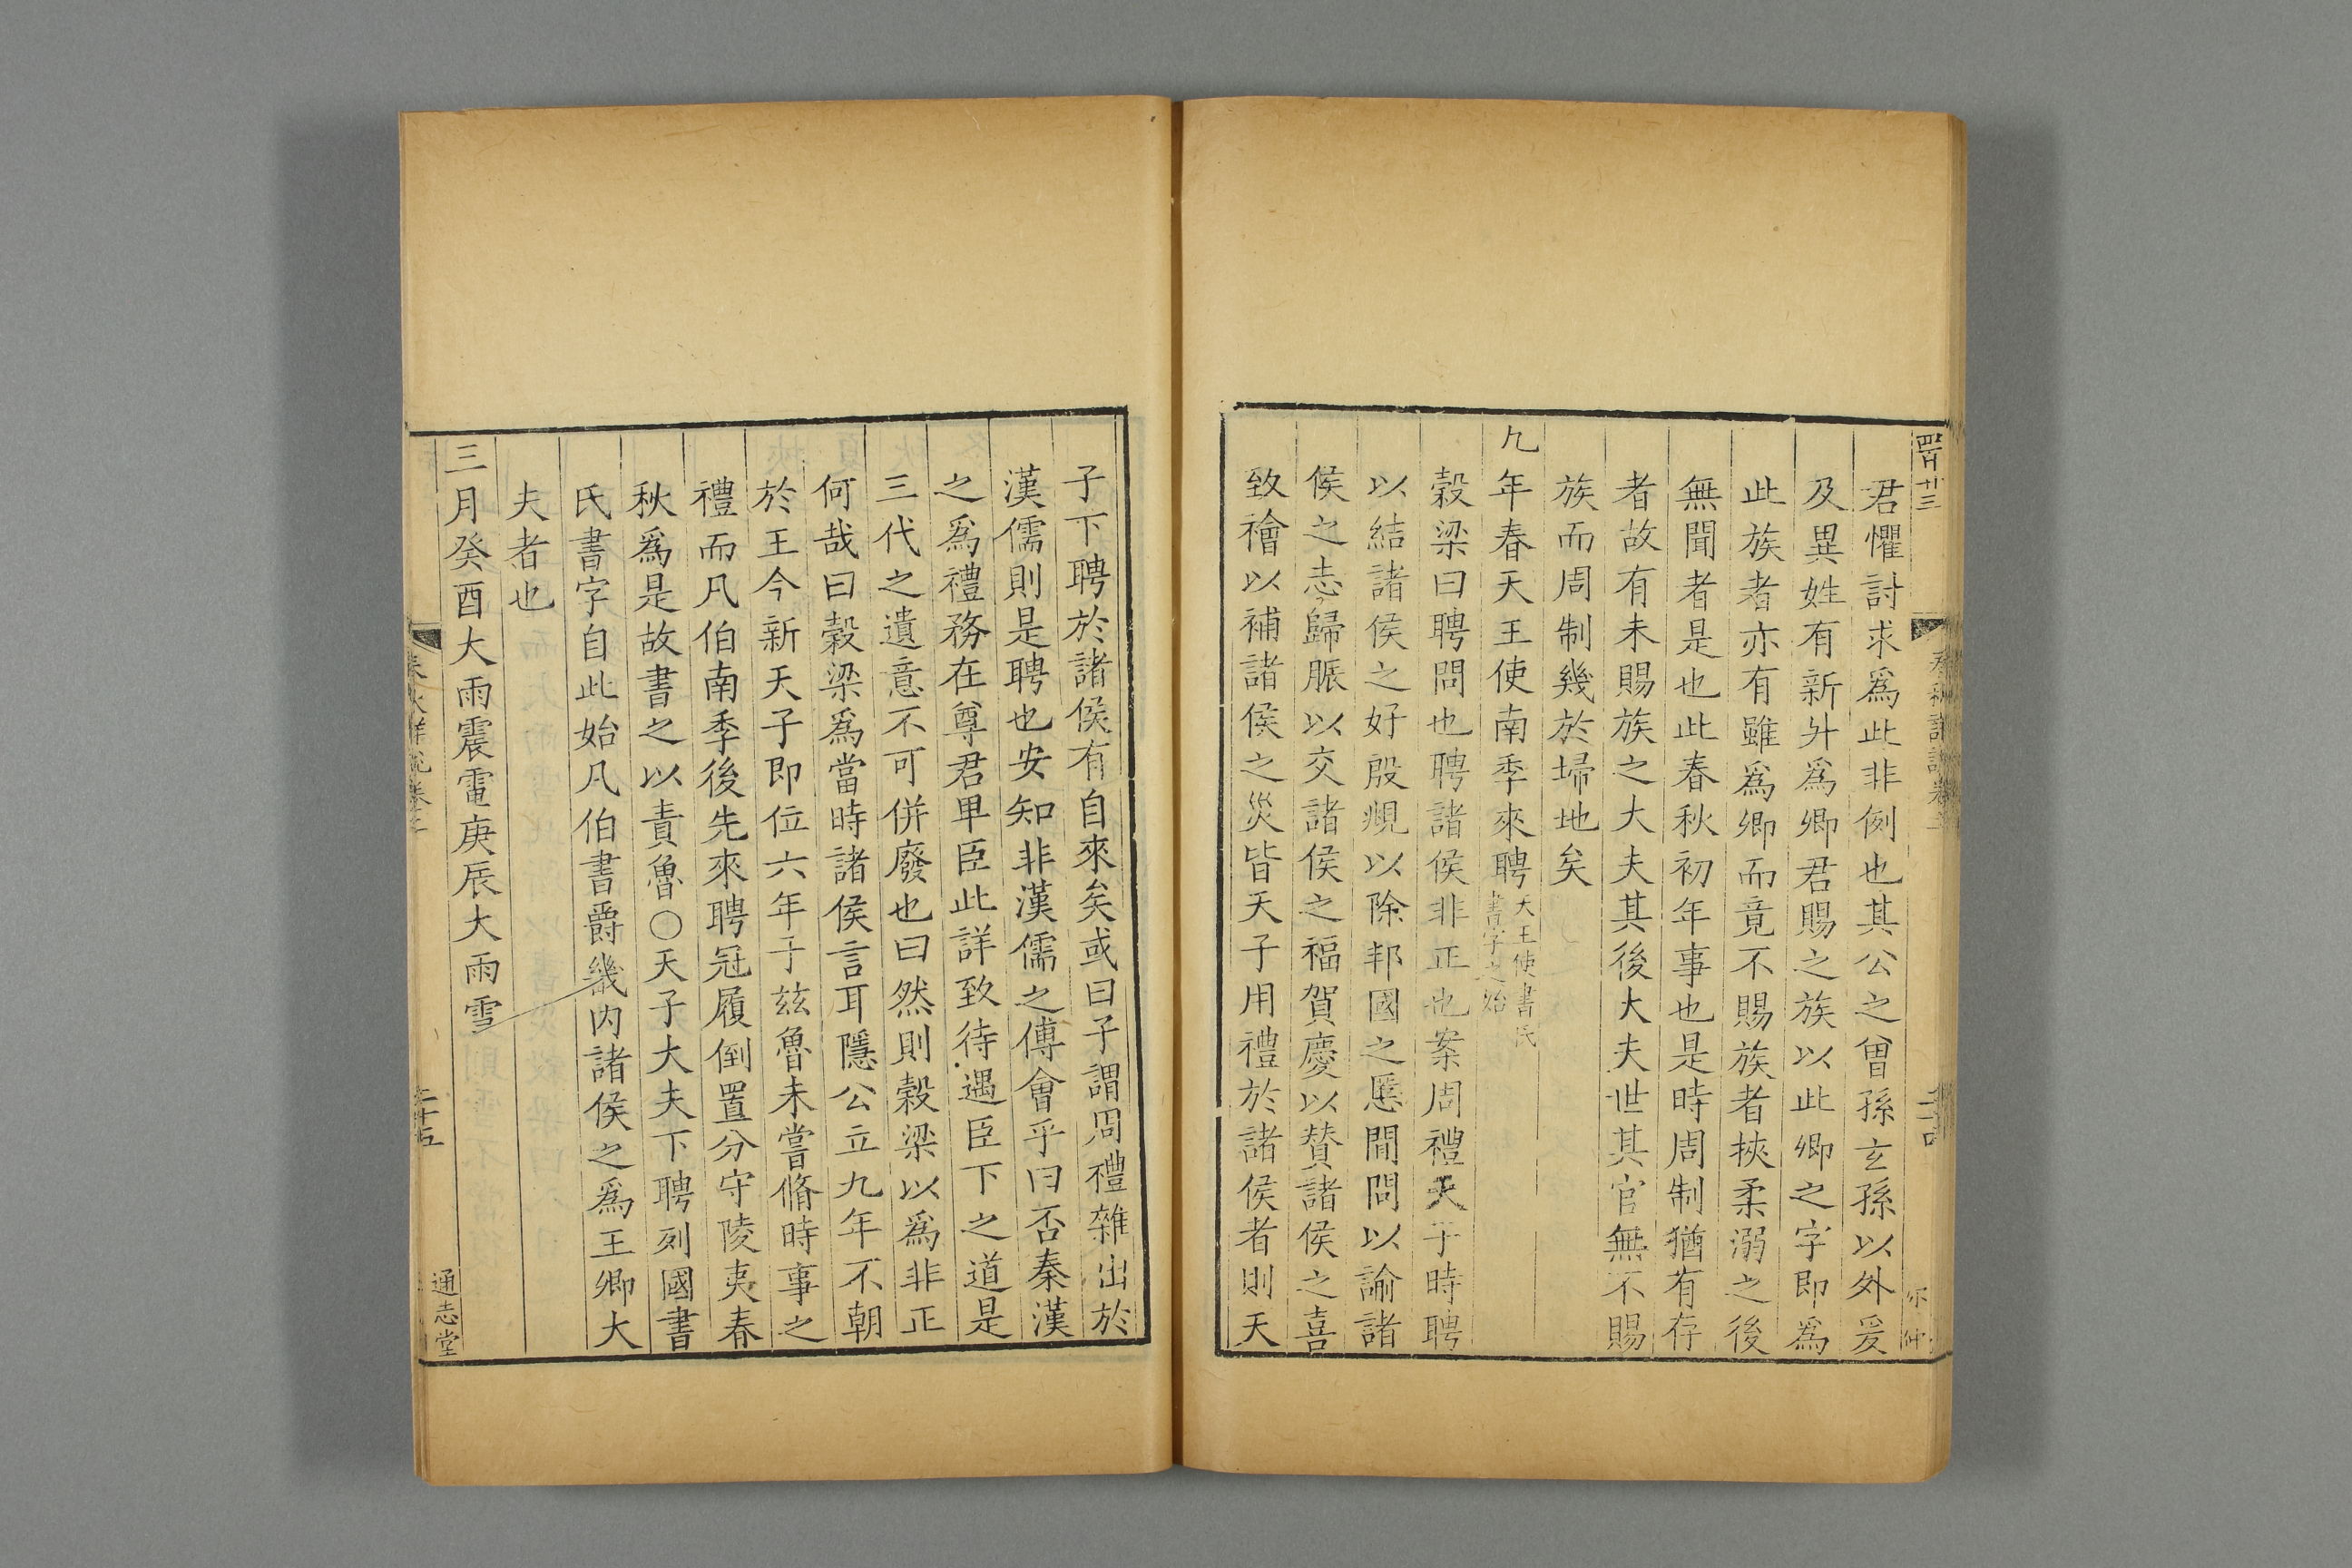 君懼討求爲此非例也其公之曾孫玄孫以外爰
及異姓有新升爲卿君賜之族以此卿之字即爲
此族者亦有雖爲卿而竟不賜族者挾柔溺之後
無聞者是也此春秋初年事也是時周制猶有存
者故有未賜族之大夫其後大夫世其官無不賜
族而周制幾於埽地矣
九年春天王使南季來聘天王使書氏
書字之始
穀梁曰聘問也聘諸侯非正也案周禮天子時聘
以結諸侯之好殷覜以除邦國之慝間問以諭諸
侯之志歸脤以交諸侯之福賀慶以贊諸侯之喜
致禬以補諸侯之災皆天子用禮於諸侯者則天
子下聘於諸侯有自來矣或曰子謂周禮雜出於
漢儒則是聘也安知非漢儒之傅會乎曰否秦漢
之爲禮務在尊君卑臣此詳致待遇臣下之道是
三代之遺意不可併廢也曰然則穀梁以爲非正
何哉曰穀梁爲當時諸侯言耳隱公立九年不朝
於王今新天子即位六年于玆魯未嘗脩時事之
禮而凡伯南季後先來聘冠履倒置分守陵夷春
秋爲是故書之以責魯〇天子大夫下聘列國書
氏書字自此始凡伯書爵畿内諸侯之爲王卿大
夫者也
三月癸酉大雨震電庚辰大雨雪
通志堂